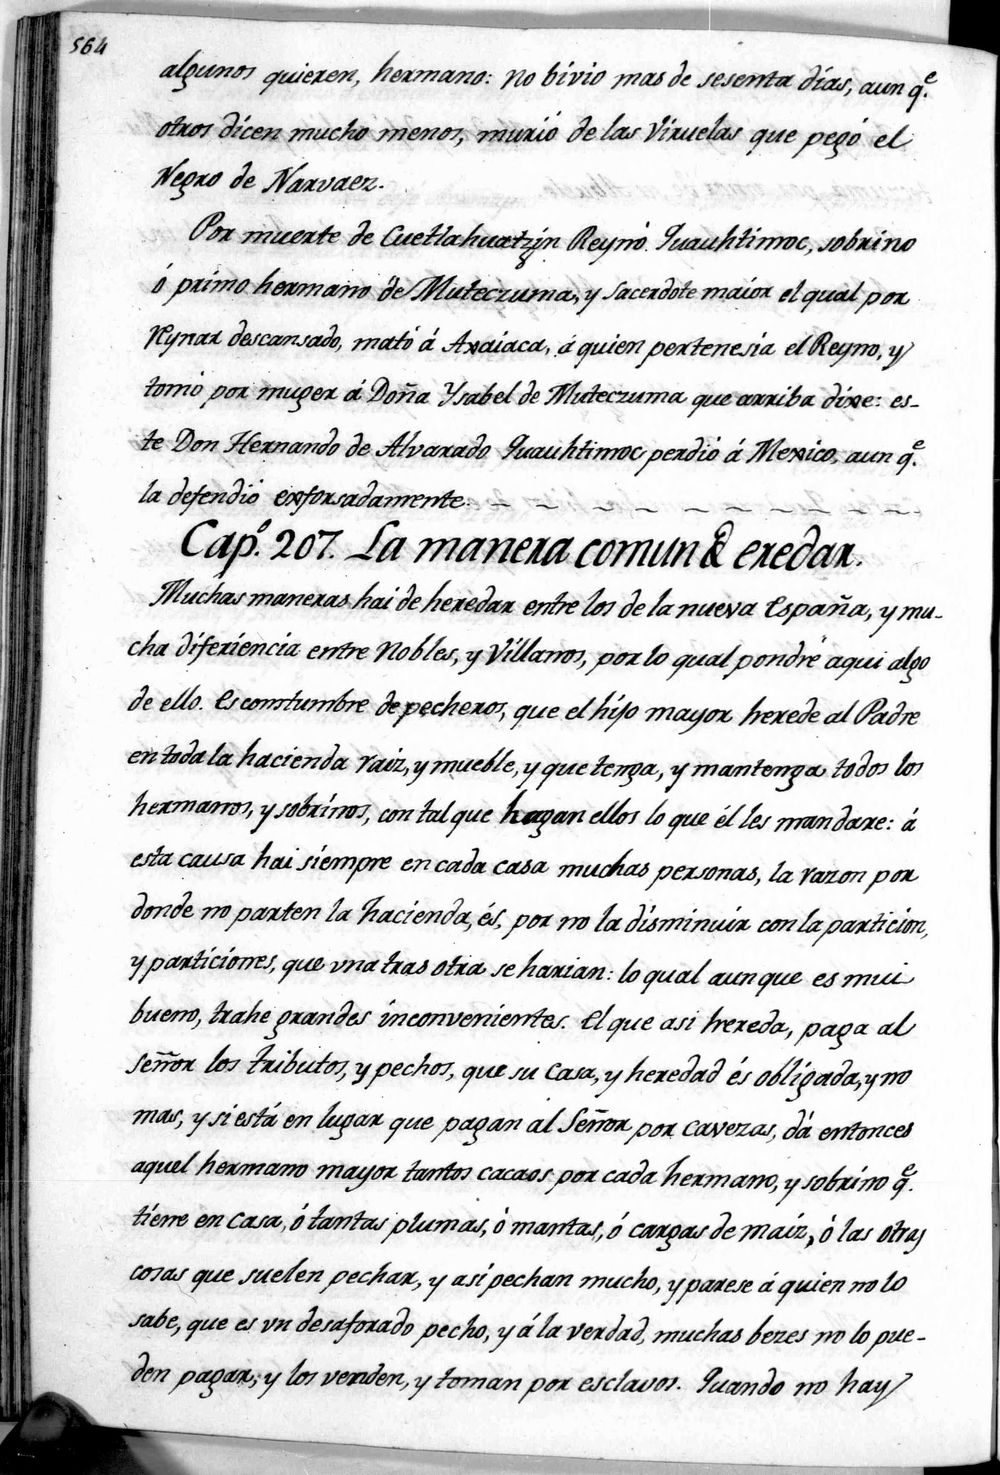 564
algunos quieren, hermano: no bivio mas de sesenta días, aun q.e
otros dicen mucho menos, murió de las Viruelas que pegó el
Negro de Narvaez.
Por muerte de Cuetlahuatzin Reynó Quauhtimoc, sobrino
ó primo hermano de Muteczuma, y sacerdote maior el qual por
Reynar descansado, mató á Axaiaca, á quien pertenesia el Reyno, y
tomó por muger á Doña Ysabel de Muteczuma que arriba dixe: es-
te Don Hernando de Alvarado Quauhtimoc perdió á Mexico, aun q.e
la defendió exforsadamente.
Cap.o 207. La manera comun de eredar.
Muchas maneras hai de heredar entre los de la nueva España, y mu-
cha diferiencia entre Nobles, y Villanos, por lo qual pondré aqui algo
de ello. Es constumbre de pecheros, que el hijo mayor herede al Padre
en toda la hacienda raiz, y mueble, y que tenga, y mantenga todos los
hermanos, y sobrinos, con tal que hagan ellos lo que él les mandare: á
esta causa hai siempre en cada casa muchas personas, la razon por
donde no parten la hacienda, és, por no la disminuir con la particion,
y particiones, que vna tras otra se harian: lo qual aunque es mui
bueno, trahe grandes inconvenientes. El que asi hereda, paga al
señor los tributos, y pechos, que su casa, y heredad és obligada, y no
mas, y si está en lugar que pagan al Señor por cavezas, dá entonces
aquel hermano mayor tantos cacaos por cada hermano, y sobrino q.e
tiene en casa, ó tantas plumas, ó mantas, ó cargas de maiz, ó las otras
cosas que suelen pechar, y asi pechan mucho, y parese á quien no lo
sabe, que es vn desaforado pecho, y á la verdad, muchas bezes no lo pue-
den pagar, y los venden, y toman por esclavos. Quando no hay